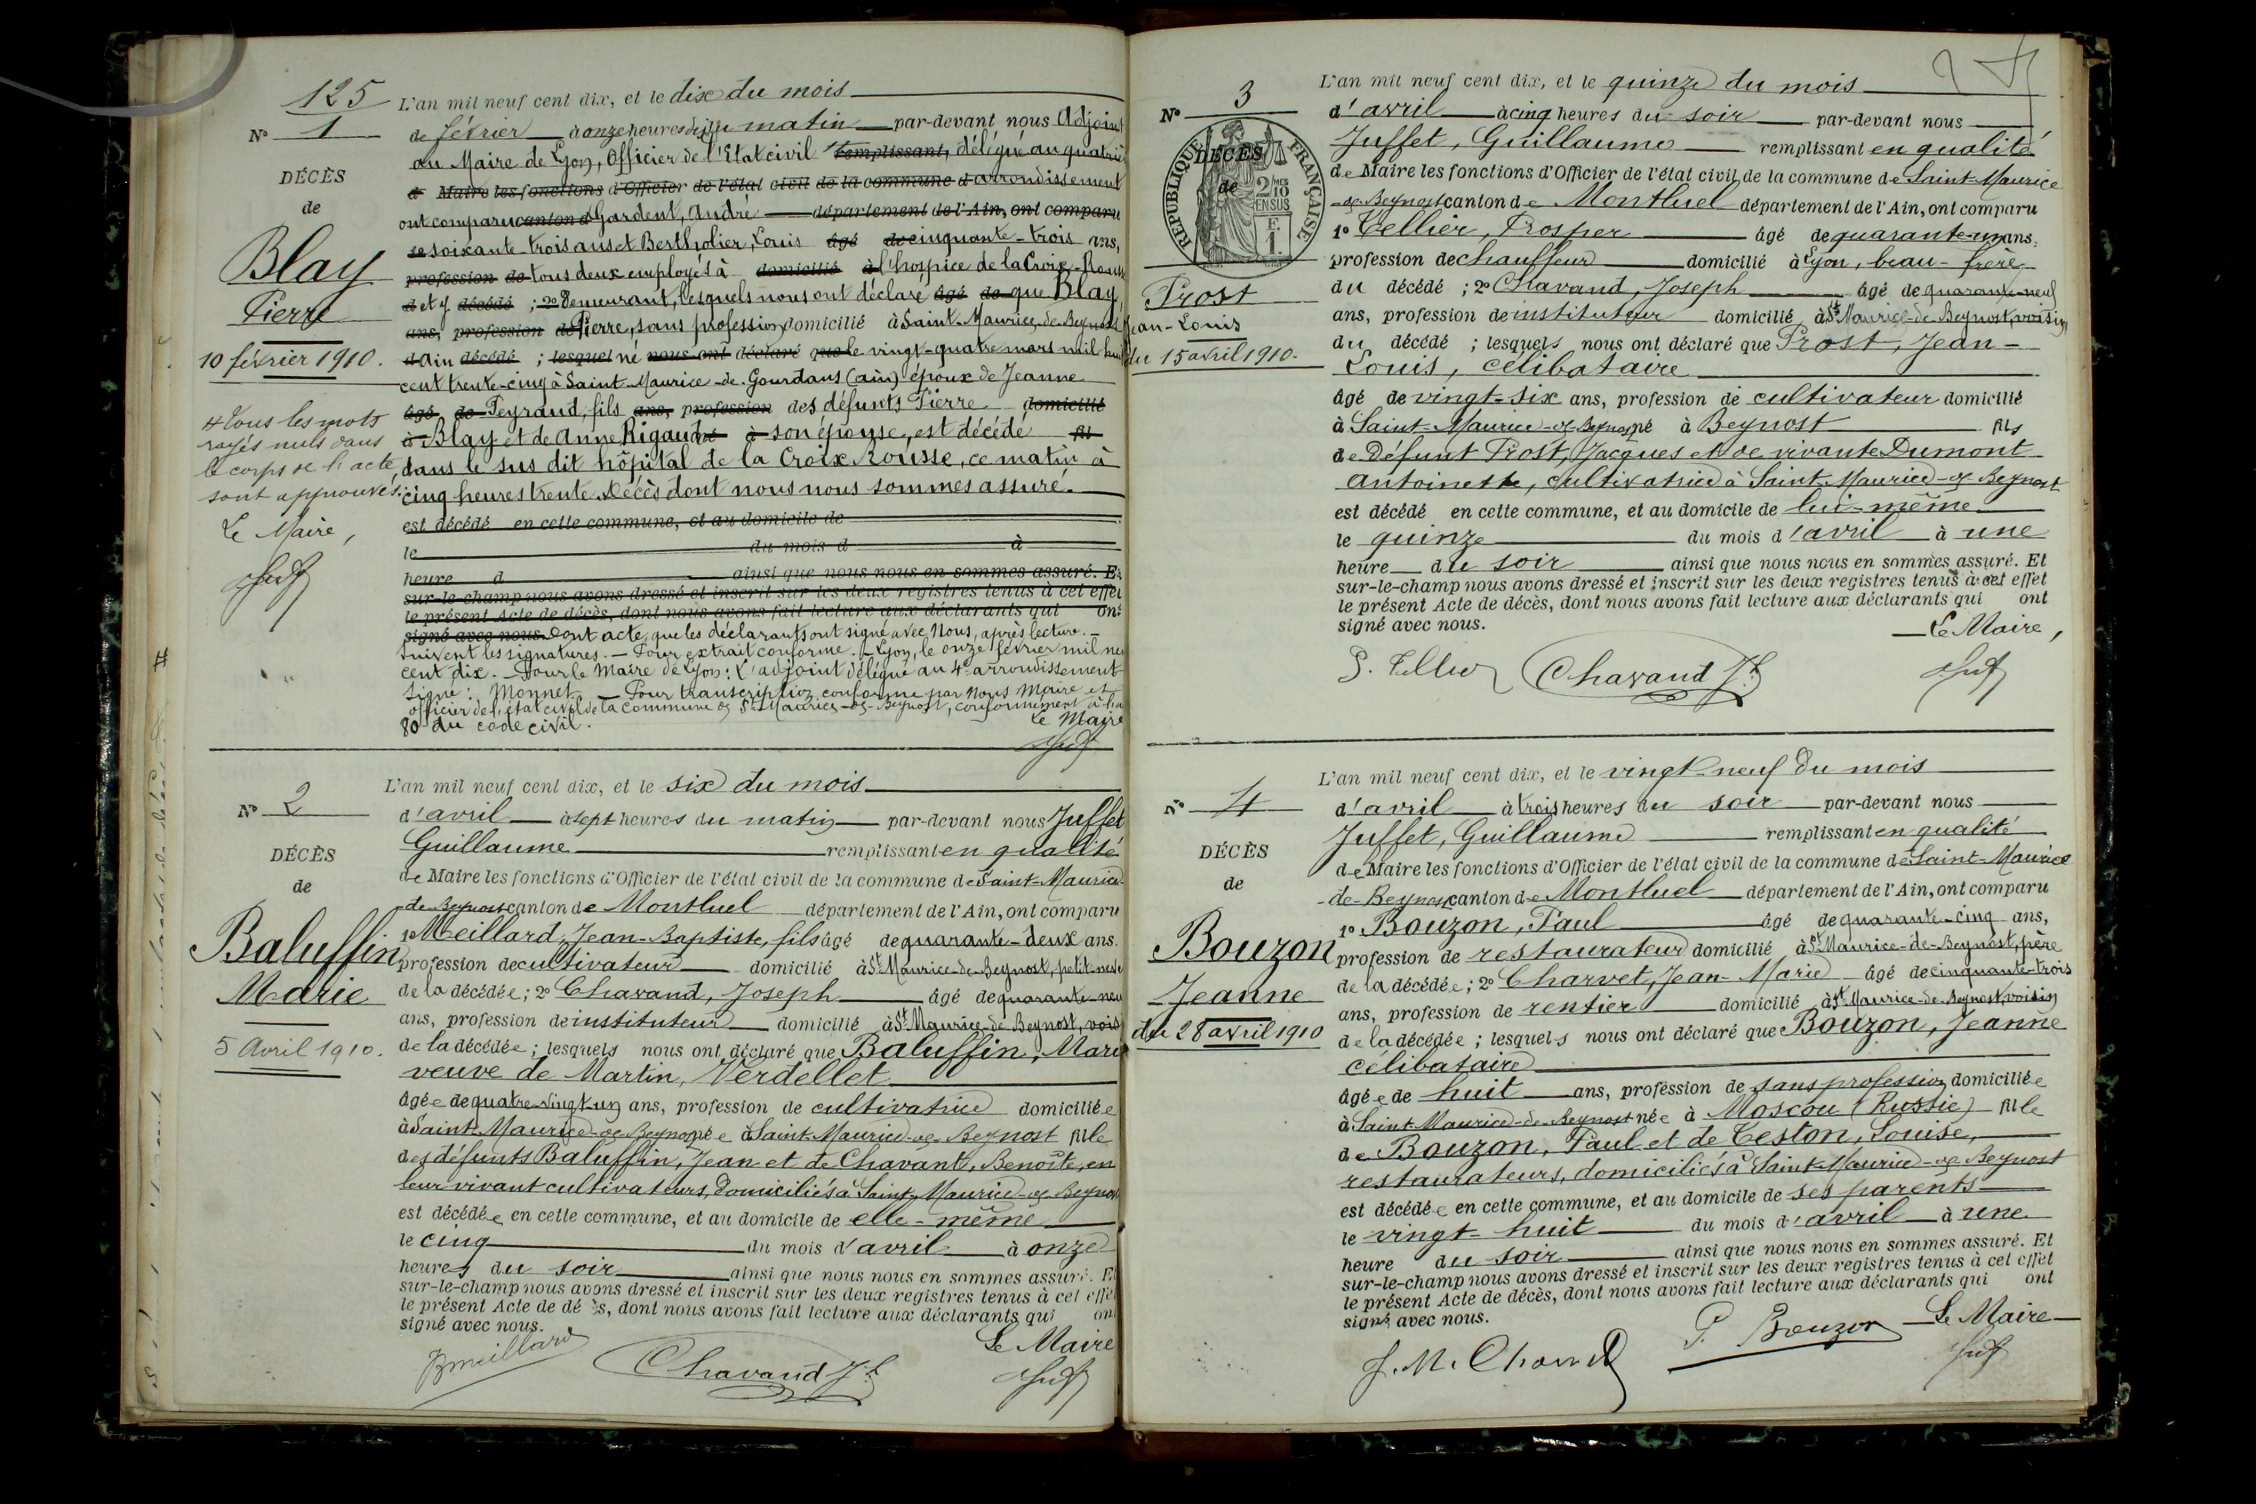 125
N° 1
DÉCÈS
de
Blay
Pierre
10 février 1910.
# Tous les mots
rayés nuls dans
le corps de l'acte,
sont approuvés.
Le Maire,
L'an mil neuf cent dix, et le dix du mois
de février à onze heures du matin par-devant nous Adjoint
au Maire de Lyon, Officier de l'Etat civil remplissant, délégué au quatriè
d Maire les fonctions d'Officier de l'état civil de la commune d arrondissement
ont comparu canton d Gardent, André département de l'Ain, ont comparu
de soixante-trois ans et Berthollier, Louis âgé de cinquante-trois ans,
profession de tous deux employés à domicilié à l'hospice de la Croix-Rouss
d et y décédé ; 2° demeurant, lesquels nous ont déclaré âgé de que Blay,
ans, profession de Pierre, sans profession domicilié à Saint-Maurice-de-Beynost
d Ain décédé ; lesquel né nous ont déclaré que le vingt-quatre mars mil huit
cent trente-cinq à Saint-Maurice-de-Gourdans (ain) époux de Jeanne
âgé de Peyraud, fils ans, profession des défunts Pierre domicilié
à Blay et de Anne Rigaud né à son épouse, est décédé fil
dans le sus dit hôpital de la Croix Rousse, ce matin à
cinq heures trente. Décès dont nous nous sommes assuré.
est décédé en cette commune, et au domicile de
le du mois d à
heure d ainsi que nous nous en sommes assuré. Et
sur-le-champ nous avons dressé et inscrit sur les deux registres tenus à cet effet
le présent Acte de décès, dont nous avons fait lecture aux déclarants qui ont
signé avec nous. Dont acte, que les déclarants ont signé avec Nous, après lecture. —
Suivent les signatures. — Pour extrait conforme. — Lyon, le onze février mil neu
cent dix. — Pour le Maire de Lyon: L'adjoint délégué au 4e arrondissement
Signé: Monnet. — Pour transcription conforme par Nous Maire et
officier de l'état civil de la commune de St-Maurice-de-Beynost, conformément à l'a
80 du code civil. Le Maire
N° 2
DÉCÈS
de
Baluffin
Marie
5 Avril 1910.
L'an mil neuf cent dix, et le six du mois
d'avril à sept heures du matin par-devant nous Juffet
Guillaume remplissant en qualité
de Maire les fonctions d'Officier de l'état civil de la commune de Saint-Maurice
de Beynost canton de Montluel département de l'Ain, ont comparu
1° Meillard, Jean-Baptiste, fils âgé de quarante-deux ans.
profession de cultivateur domicilié à St Maurice-de-Beynost, petit-neve
de la décédée; 2° Chavand, Joseph âgé de quarante-neu
ans, profession de instituteur domicilié à St Maurice-de-Beynost, vois
de la décédée; lesquels nous ont déclaré que Baluffin, Mari
veuve de Martin, Verdellet
âgée de quatre-vingt-un ans, profession de cultivatrice domiciliée
à Saint-Maurice-de-Beynost née à Saint-Maurice-de-Beynost fille
des défunts Baluffin, Jean et de Chavant, Benoîte, en
leur vivant cultivateurs, domiciliés à Saint-Maurice-de-Beynost
est décédée en cette commune, et au domicile de elle-même
le cinq du mois d'avril à onze
heures du soir ainsi que nous nous en sommes assuré. Et
sur-le-champ nous avons dressé et inscrit sur les deux registres tenus à cet effet
le présent Acte de décès, dont nous avons fait lecture aux déclarants qui ont
signé avec nous.
Le Maire
JBmeillard
Chavand Jh
N° 3
RÉPUBLIQUE FRANÇAISE
2/10 MES
EN SUS
F.
1
DÉCÈS
de
Prost
Jean-Louis
du 15 avril 1910.
L'an mil neuf cent dix, et le quinze du mois
d'avril à cinq heures du soir par-devant nous
Juffet, Guillaume remplissant en qualité
de Maire les fonctions d'Officier de l'état civil de la commune de Saint-Maurice
de Beynost canton de Montluel département de l'Ain, ont comparu
1° Tellier, Prosper âgé de quarante-un ans,
profession de chauffeur domicilié à Lyon, beau-frère
du décédé ; 2° Chavand, Joseph âgé de quarante-neuf
ans, profession de instituteur domicilié à St Maurice-de-Beynost, voisin
du décédé ; lesquels nous ont déclaré que Prost, Jean-
Louis, célibataire
âgé de vingt-six ans, profession de cultivateur domicilié
à Saint-Maurice-de-Beynost né à Beynost fils
de Défunt Prost, Jacques et de vivante Dumont
Antoinette, cultivatrice à Saint-Maurice-de-Beynost
est décédé en cette commune, et au domicile de lui-même
le quinze du mois d'avril à une
heure du soir ainsi que nous nous en sommes assuré. Et
sur-le-champ nous avons dressé et inscrit sur les deux registres tenus à cet effet
le présent Acte de décès, dont nous avons fait lecture aux déclarants qui ont
signé avec nous.
Le Maire,
P. Tellier
Chavand Jh
N° 4
DÉCÈS
de
Bouzon
Jeanne
du 28 avril 1910
L'an mil neuf cent dix, et le vingt-neuf du mois
d'avril à trois heures du soir par-devant nous
Juffet, Guillaume remplissant en qualité
de Maire les fonctions d'Officier de l'état civil de la commune de Saint-Maurice
-de-Beynost canton de Montluel département de l'Ain, ont comparu
1° Bouzon, Paul âgé de quarante-cinq ans,
profession de restaurateur domicilié à St Maurice-de-Beynost, père
de la décédée; 2° Charvet, Jean-Marie âgé de cinquante-trois
ans, profession de rentier domicilié à St Maurice-de-Beynost, voisin
de la décédée ; lesquels nous ont déclaré que Bouzon, Jeanne
célibataire
âgée de huit ans, profession de sans profession domiciliée
à Saint-Maurice-de-Beynost née à Moscou (Russie) fille
de Bouzon, Paul et de Teston, Louise,
restaurateurs, domiciliés à Saint-Maurice-de-Beynost
est décédée en cette commune, et au domicile de ses parents
le vingt-huit du mois d'avril à une
heure du soir ainsi que nous nous en sommes assuré. Et
sur-le-champ nous avons dressé et inscrit sur les deux registres tenus à cet effet
le présent Acte de décès, dont nous avons fait lecture aux déclarants qui ont
signé avec nous.
Le Maire
J. M. Charvet
P. Bouzon